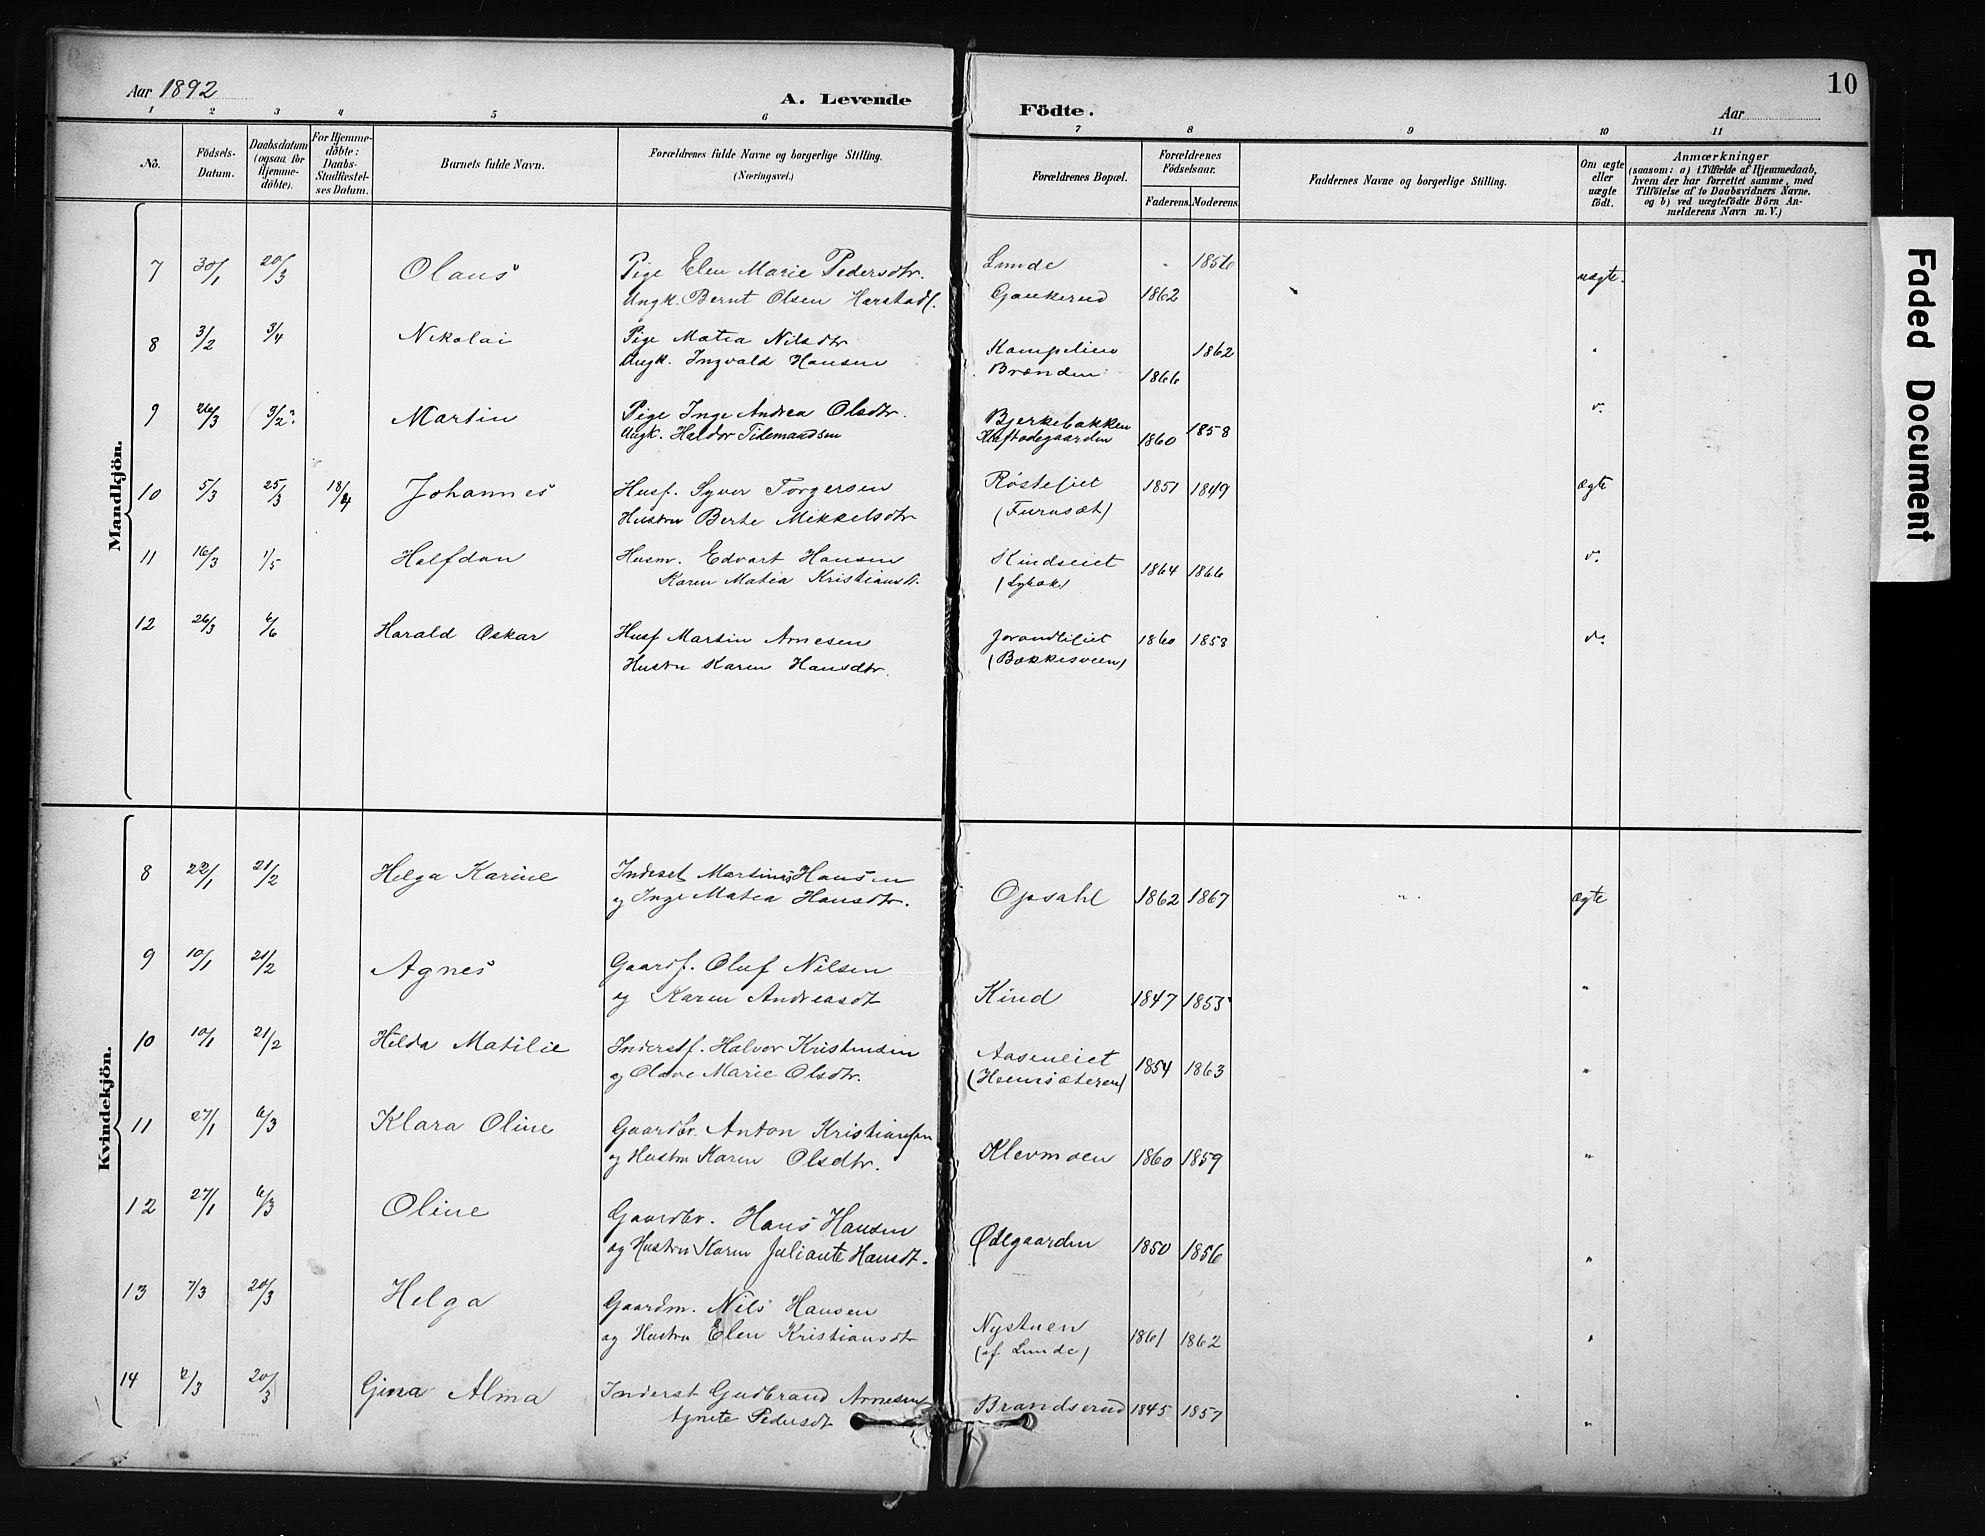 Aar 1892
A. Levende
Födte.
Aar
10
1 2 3 4 5 6 7 8 9 10 11
Nô.
Födsels-Datum.
Daabsdatum (ogsaa for Hjemme-döbte).
For Hjemme-döbte: Daabs-Stadfæstel-ses Datum.
Barnets fulde Navn.
Forældrenes fulde Navne og borgerlige Stilling.
(Næringsvei.)
Forældrenes Bopæl.
Forældrenes Födselsaar.
Faderens. Moderens.
Faddernes Navne og borgerlige Stilling.
Om ægte eller uægte födt.
Anmærkninger
(saasom: a) i Tilfælde af Hjemmedaab,
hvem der har forrettet samme, med
Tilföielse af to Daabsvidners Navne,
og b) ved uægtefödte Börn An-
melderens Navn m. V.)
Mandkjön.
7 30/1 20/3 Olaus Pige Elen Marie Pedersdtr. Lunde 1856 uægte.
Ungk. Bernt Olsen Harstad Gaukerud 1862
8 3/2 3/4 Nikolai Pige Matea Nilsdtr 1862 "
Ungk. Ingvald Hansen Brænden 1866
9 26/3 Martin Pige Inge Andrea Olsdtr. Bjerkebakken 1858 do
Ungk. Haldor Tidemandsen 1860
10 5/3 25/3 18/4 Johannes Husf. Syver Torgersen Røsteeiet 1851 1849 ægte
Hustru Berte Mikkelsdtr (Furusæt)
11 16/3 1/5 Halfdan Husm. Edvart Hansen Kindseiet 1864 1866 do
Karen Matea Kristiansdt. (Lybæk)
12 26/3 6/6 Harald Oskar Husf Martin Arnesen 1860 1858 do
Hustru Karen Hansdtr. (Bækkesveen)
Kvindekjön.
8 22/1 21/2 Helga Karine Inderst Martinus Hansen
og Inge Matea Hansdtr. Opsahl 1862 1867 " ægte
9 10/1 21/2 Agnes Gaardf. Oluf Nilsen
og Karen Andreasdt Kind 1847 1853 "
10 10/1 21/2 Hilda Matilie Inderstf. Halvor Kristensen Aaseneiet 1854 1863 "
og Olave Marie Olsdtr. (Heemsæteren)
11 27/1 6/3 Klara Oline Gaardbr. Anton Kristiansen
og Hustru Karen Olsdtr. Klevmoen 1860 1859 "
12 27/1 6/3 Oline Gaardbr. Hans Hansen
og Hustru Karen Juliante Hansdt. Ødegaarden 1850 1856 "
13 7/3 20/3 Helga Gaardm. Nils Hansen
og Hustru Elen Kristiansdt Nystuen 1861 1862 "
(af Lunde)
14 2/3 20/3 Gina Alma Inderst Gudbrand Arnesen Brandserud 1845 1857 "
Agnete Pedersdt
Faded Document